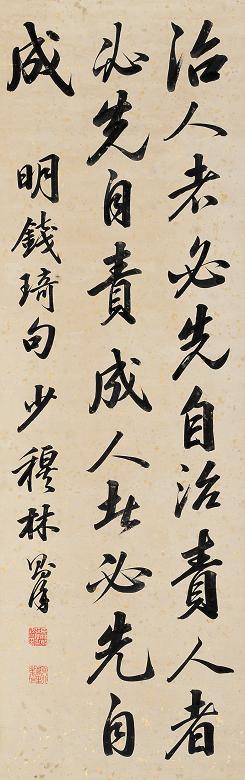 治人者必先自治責人者
必先自責成人者必先自
成
明錢琦句少穆林則徐